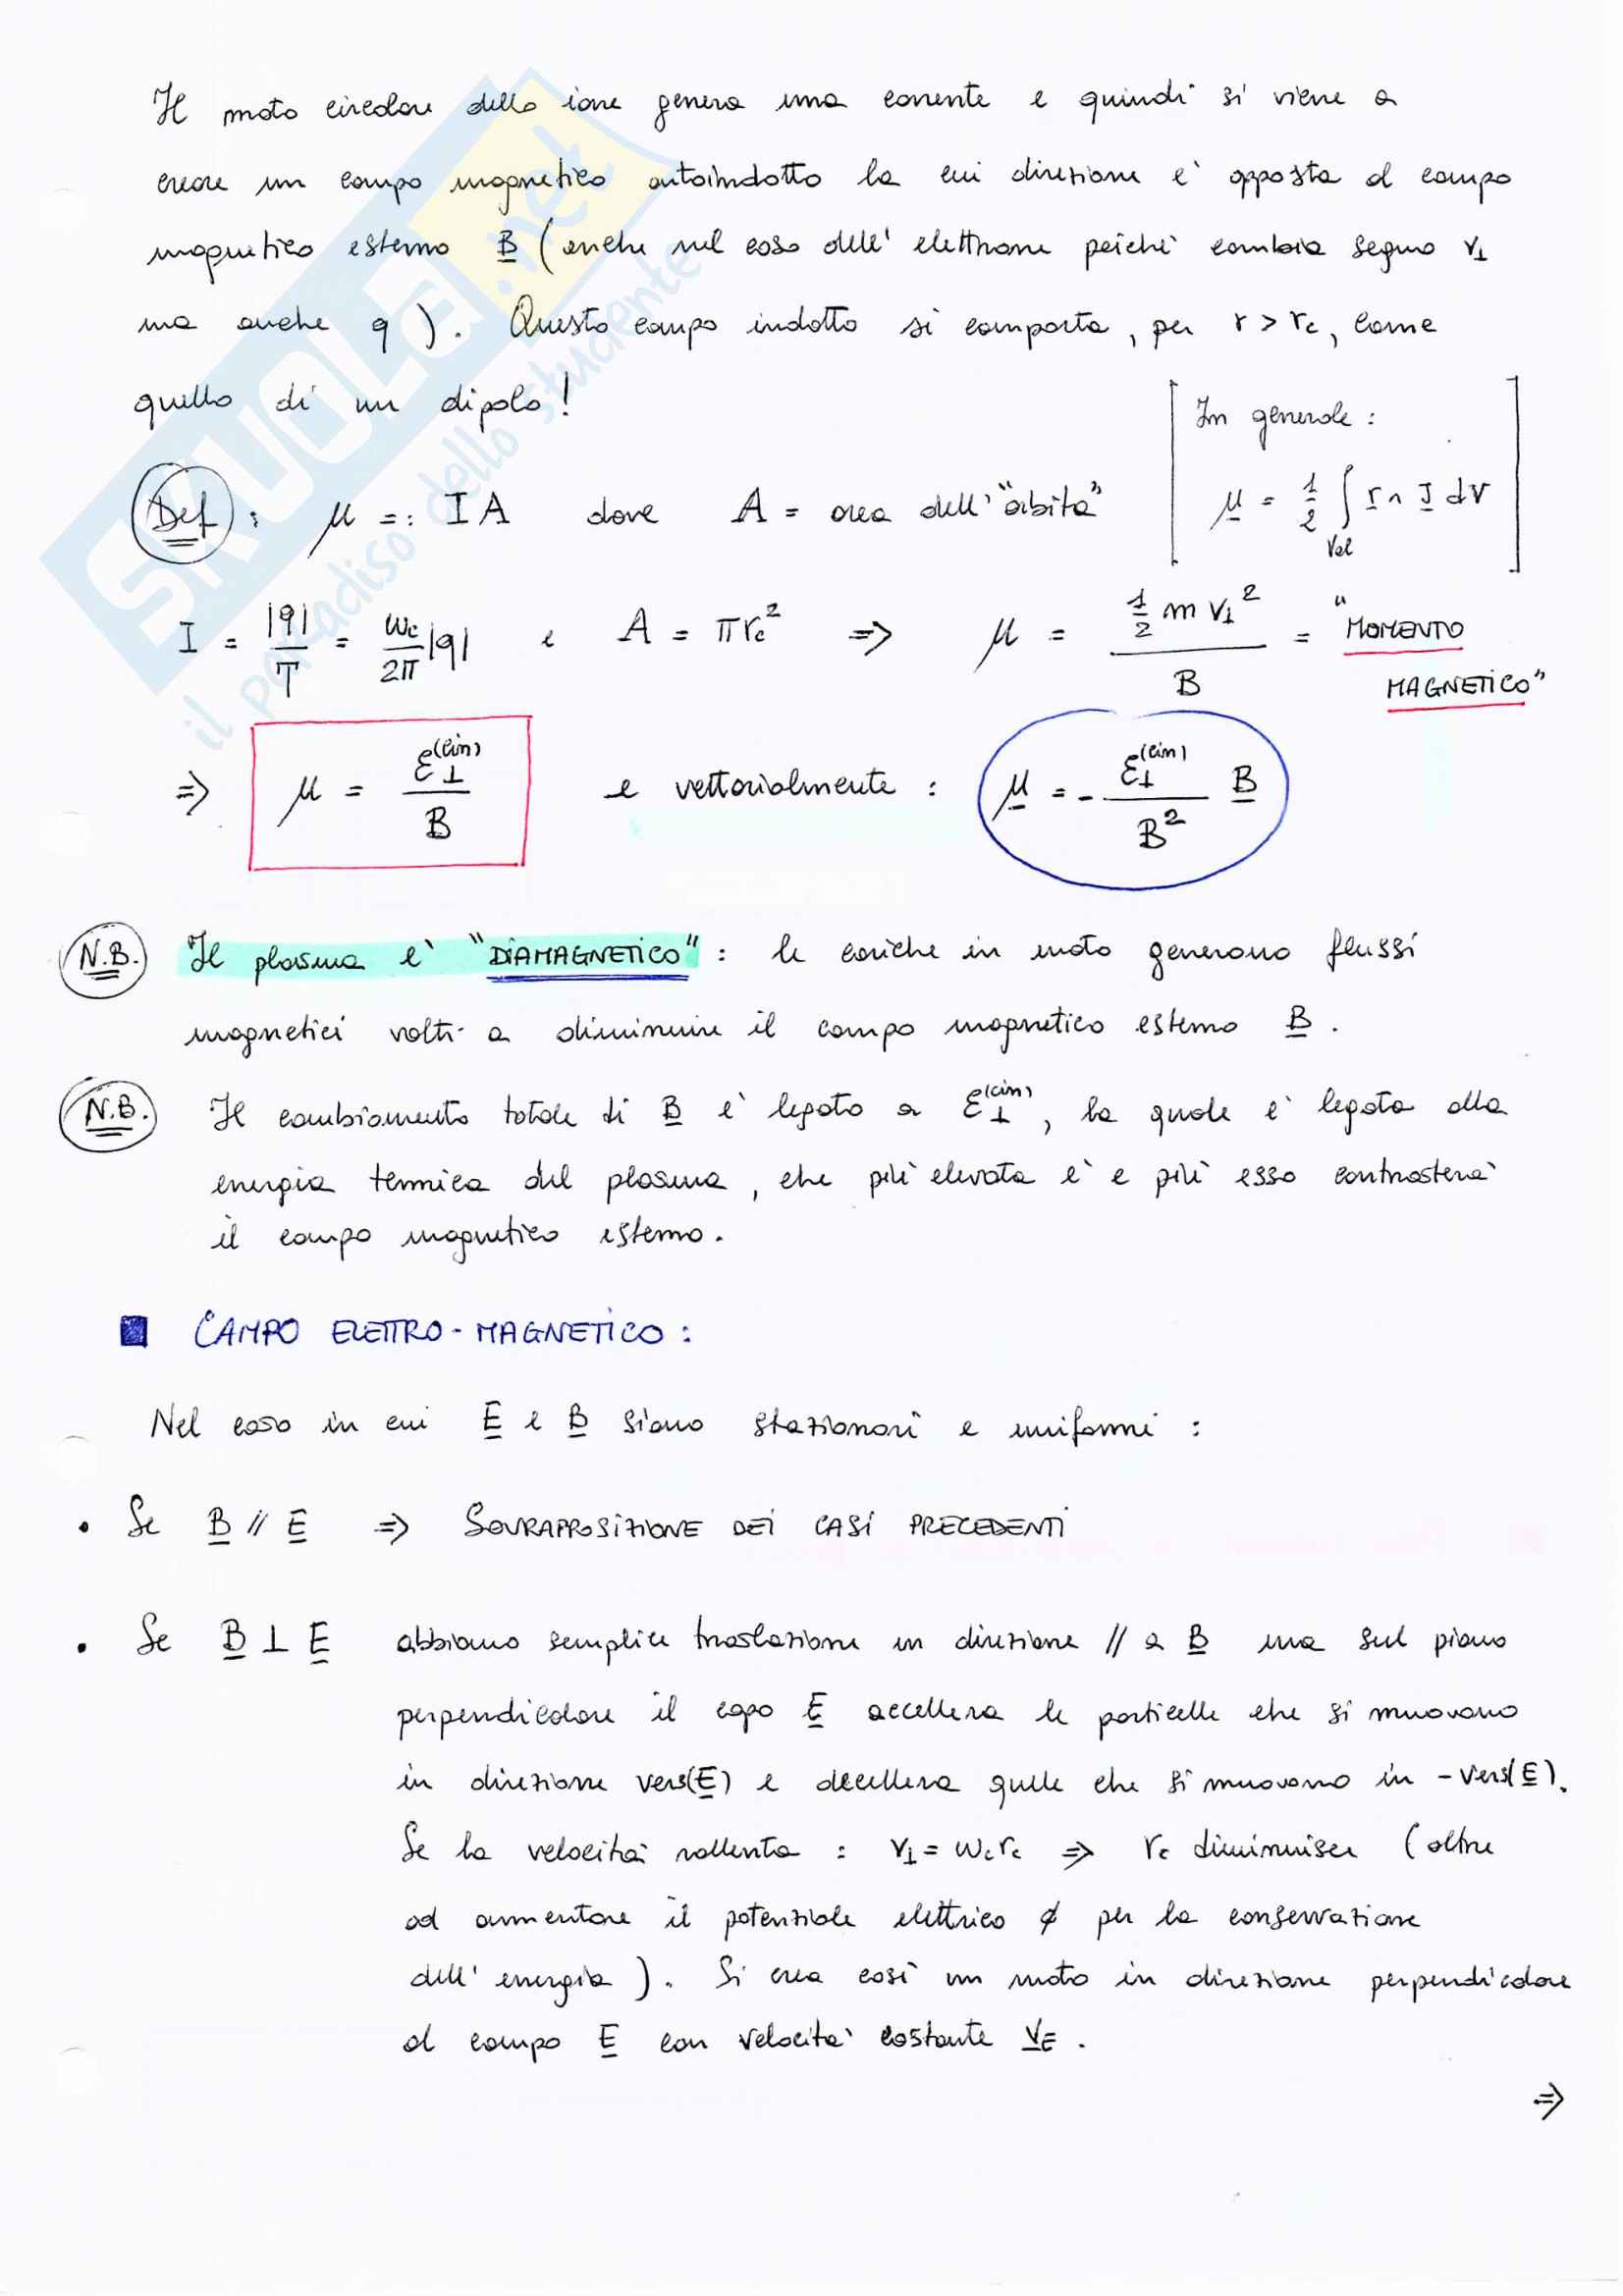 Il moto circolare dello ione genera una corrente e quindi si viene a
creare un campo magnetico autoindotto la cui direzione e' opposta al campo
magnetico esterno B (anche nel caso dell' elettrone poiché cambia segno v⊥
ma anche q). Questo campo indotto si comporta, per r > rc, come
quello di un dipolo!
In generale:
μ = 1/2 ∫Vol r ∧ J dV
Def: μ =: I A dove A = area dell' "orbita"
I = |q|/T = ωc/2π |q| e A = π rc² ⇒ μ = ½ m v⊥² / B = "MOMENTO
MAGNETICO"
⇒ μ = ε⊥(cin) / B e vettorialmente: μ = - ε⊥(cin) / B² B
N.B. Il plasma e' "DIAMAGNETICO": le cariche in moto generano flussi
magnetici volti a diminuire il campo magnetico esterno B.
N.B. Il cambiamento totale di B e' legato a ε⊥(cin), la quale e' legata alla
energia termica del plasma, che più elevata e' e più esso contrastera'
il campo magnetico esterno.
CAMPO ELETTRO-MAGNETICO:
Nel caso in cui E e B siano stazionari e uniformi:
• Se B // E ⇒ SOVRAPPOSIZIONE DEI CASI PRECEDENTI
• Se B ⊥ E abbiamo semplice traslazione in direzione // a B ma sul piano
perpendicolare il capo E accellera le particelle che si muovono
in direzione vers(E) e decellera quelle che si muovono in -vers(E).
Se la velocità rallenta: v⊥ = ωc rc ⇒ rc diminuisce (oltre
ad aumentare il potenziale elettrico φ per la conservazione
dell' energia). Si crea così un moto in direzione perpendicolare
al campo E con velocita' costante vE.
⇒
SKUOLA.net
il paradiso dello studente